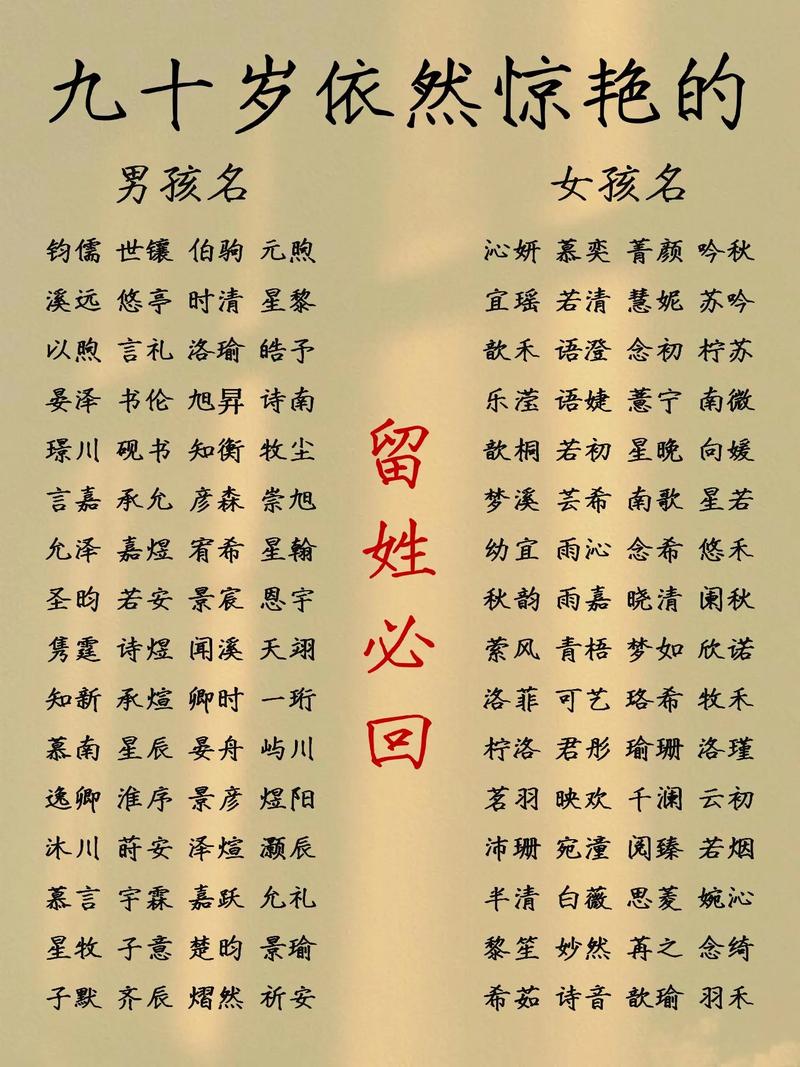 九十岁依然惊艳的
男孩名
钧儒 世镶 伯驹 元煦
溪远 悠亭 时清 星黎
以煦 言礼 洛瑜 皓予
晏泽 书伦 旭昇 诗南
璟川 砚书 知衡 牧尘
言嘉 承允 彦森 崇旭
允泽 嘉煜 宥希 星翰
圣昀 若安 景宸 恩宇
隽霆 诗煜 闻溪 天翊
知新 承煊 卿时 一珩
慕南 星辰 晏舟 屿川
逸卿 淮序 景彦 煜阳
沐川 莳安 泽煊 灏辰
慕言 宇霖 嘉跃 允礼
星牧 子意 楚昀 景瑜
子默 齐辰 熠然 祈安
留姓必回
女孩名
沁妍 慕奕 菁颜 吟秋
宜瑶 若清 慧妮 苏吟
歆禾 语澄 念初 柠苏
乐滢 语婕 薏宁 南微
歆桐 若初 星晚 向媛
梦溪 芸希 南歌 星若
幼宜 雨沁 念希 悠禾
秋韵 雨嘉 晓清 阑秋
萦风 青梧 梦如 欣诺
洛菲 可艺 珞希 牧禾
柠洛 君彤 瑜珊 洛瑾
茗羽 映欢 千澜 云初
沛珊 宛潼 阅臻 若烟
半清 白薇 思菱 婉沁
黎笙 妙然 苒之 念绮
希茹 诗音 歆瑜 羽禾